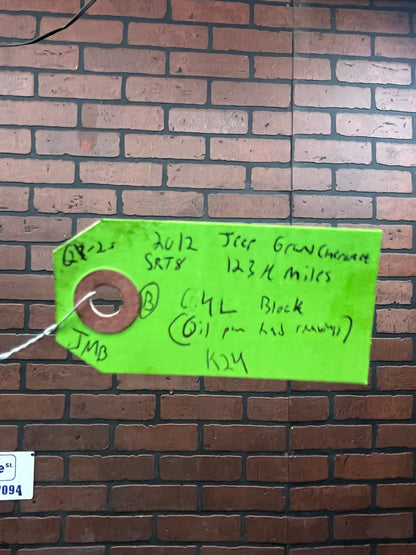 2012 Jeep Grand Cherokee
SRT8 123K Miles
B 6.4L Block
(Oil pan had shavings)
JMB
K24
e St.
7094